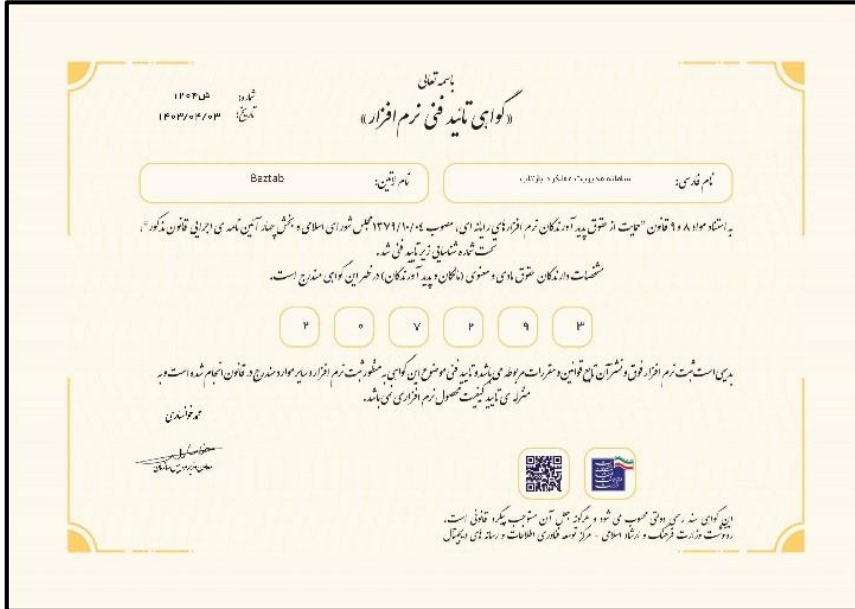 باسمه تعالی
شماره: ش۱۲۰۴
تاریخ: ۱۴۰۳/۰۴/۰۳
«گواهی تائید فنی نرم افزار»
نام فارسی: سامانه مدیریت عملکرد بازتاب
نام لاتین: Baztab
به استناد مواد ۸ و ۹ قانون "حمایت از حقوق پدید آورندگان نرم افزارهای رایانه ای، مصوب ۱۳۷۹/۱۰/۰۴ مجلس شورای اسلامی و بخش چهار آئین نامه ی اجرایی قانون مذکور"،
تحت شماره شناسایی زیر تایید فنی شد.
مشخصات دارندگان حقوق مادی و معنوی (مالکان و پدید آورندگان) در ظهر این گواهی مندرج است.
۲ ۰ ۷ ۲ ۹ ۳
بدیهی است ثبت نرم افزار فوق و نشر آن تابع قوانین و مقررات مربوطه می باشد و تایید فنی موضوع این گواهی به منظور ثبت نرم افزار و سایر موارد مندرج در قانون انجام شده است و به
منزله ی تایید کیفیت محصول نرم افزاری نمی باشد.
این گواهی سند رسمی دولتی محسوب می شود و هرگونه جعل آن مستوجب پیگرد قانونی است.
رونوشت وزارت فرهنگ و ارشاد اسلامی - مرکز توسعه فناوری اطلاعات و رسانه های دیجیتال